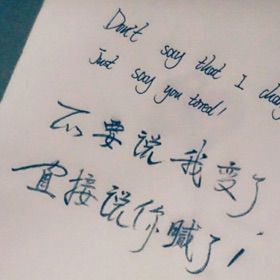 Don't say that I chang
Just say you tired!
不要说我变了
直接说你腻了!